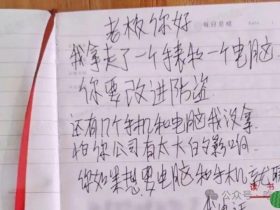 老板你好
我拿走了一个手表和一个电脑
你要改进防盗
还有几个手机和电脑我没拿
怕你公司有太大的
你如果想要电脑和手机
公众号